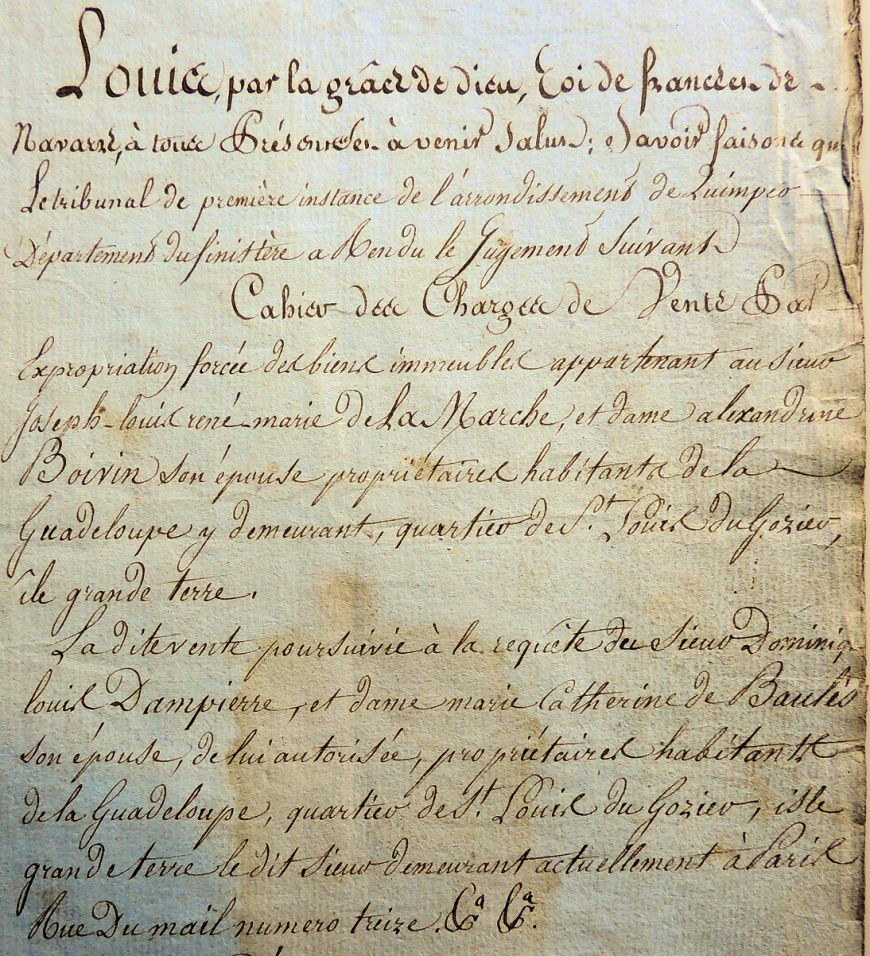 Louis, par la grâce de dieu, Roi de france et de
Navarre, à tous Présents et à venir Salut ; Savoir faisons que
Le tribunal de première instance de l'arrondissement de Quimper
Département du finistère a Rendu le Jugement Suivant
Cahier des Charges de Vente Par
Expropriation forcée des biens immeubles appartenant au Sieur
Joseph-louis rené-marie De La Marche, et dame alexandrine
Boivin son épouse propriétaires habitants de la
Guadeloupe y demeurant, quartier de St. Louis Du Gozier,
île grande terre.
La dite vente poursuivie à la requête des Sieur Dominiq
louis Dampierre, et dame marie Catherine de
son épouse, de lui autorisée, propriétaires habitants
de la Guadeloupe, quartier de St. Louis du Gozier, isle
grande terre le dit Sieur demeurant actuellement à Paris
Rue Du mail numero treize.